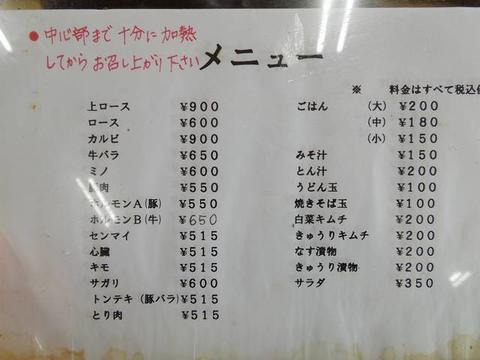 ● 中心部まで十分に加熱
してからお召し上がり下さい
メニュー
※ 料金はすべて税込
上ロース ¥900
ロース ¥600
カルビ ¥900
牛バラ ¥650
ミノ ¥600
肉 ¥550
ホルモンA(豚) ¥550
ホルモンB(牛) ¥650
センマイ ¥515
心臓 ¥515
キモ ¥515
サガリ ¥600
トンテキ(豚バラ) ¥515
とり肉 ¥515
ごはん (大) ¥200
(中) ¥180
(小) ¥150
みそ汁 ¥150
とん汁 ¥200
うどん玉 ¥100
焼きそば玉 ¥100
白菜キムチ ¥200
きゅうりキムチ ¥200
なす漬物 ¥200
きゅうり漬物 ¥200
サラダ ¥350